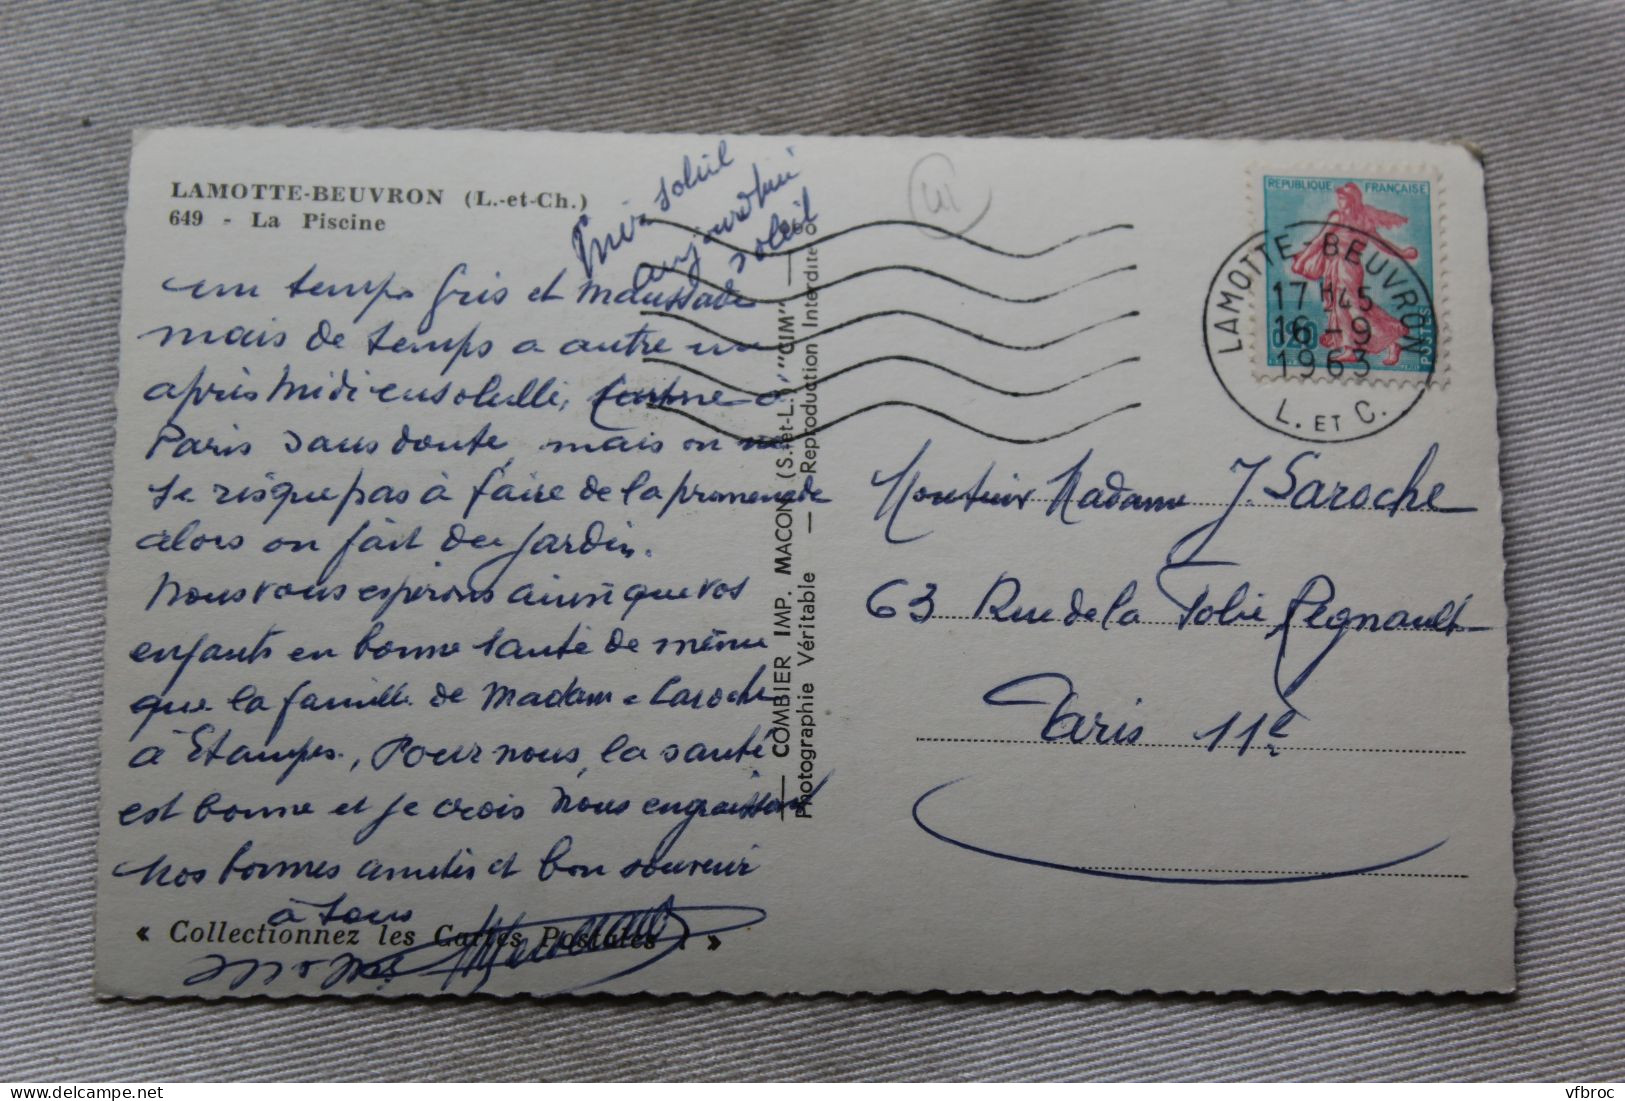 LAMOTTE-BEUVRON (L.-et-Ch.)
649 - La Piscine
hier soleil
aujourd'hui
soleil
un temps gris et Maussade
mais de temps a autre un
après Midi ensoleillé, comme a
Paris sans doute, mais on ne
se risque pas à faire de la promenade
alors on fait du jardin.
Nous vous espérons ainsi que vos
enfants en bonne santé de même
que la famille de Madame Laroche
à Etampes, Pour nous, la santé
est bonne et je crois Nous engraissons
Nos bonnes amitiés et bon souvenir
à tous
« Collectionnez les Cartes Postales ! »
— COMBIER IMP. MACON (S.-et-L.) "CIM" —
Photographie Véritable — Reproduction Interdite
REPUBLIQUE FRANÇAISE
0,20
POSTES
LAMOTTE-BEUVRON
17H45
16-9
1963
L. ET C.
Monsieur Madame J. Laroche
63 Rue de la Folie Regnault
Paris 11e
vfbroc